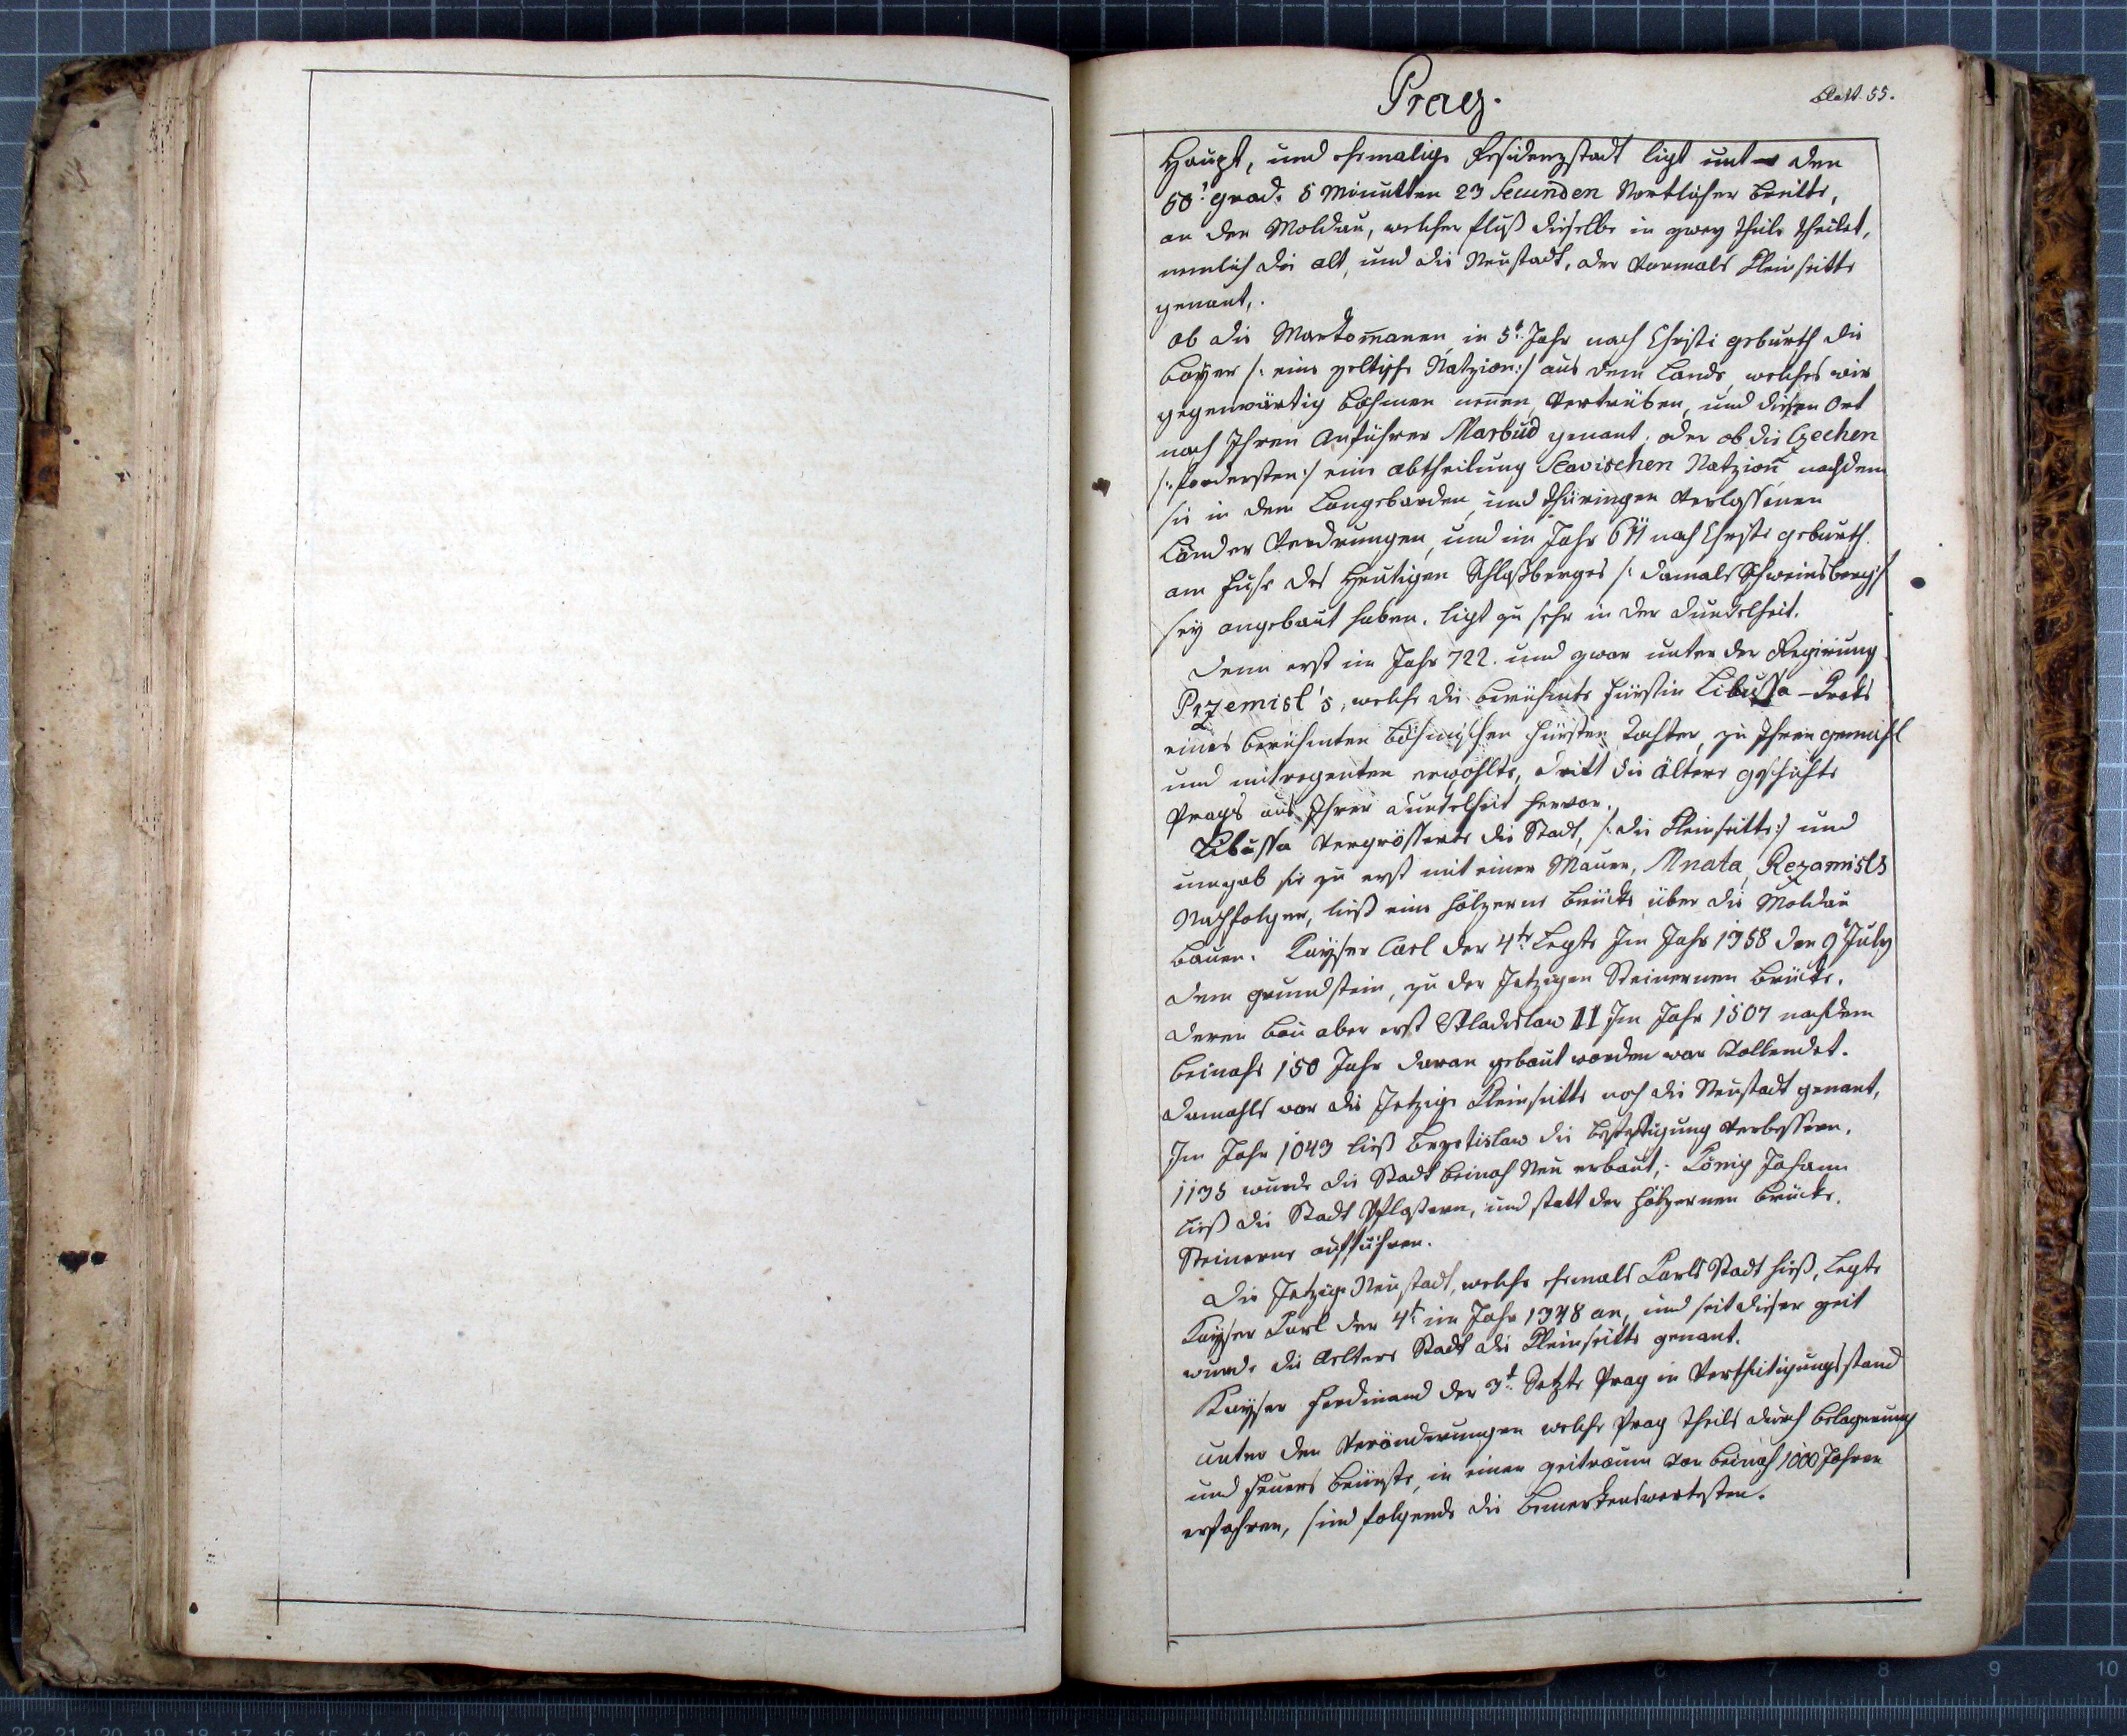 Prag.
Blatt. 55.
Haupt, und ehemalige Residenzstadt ligt unter den
50.' grad. 5 Minutten 23 Secunden Nortlicher breitte,
an der Moldau, welcher fluß dieselbe in zwey theile theilet,
nemlich die alt, und die Neustadt, oder vormals Kleinseitte
genant,.
ob die Markomanen, in 5t. Jahr nach Christi geburth die
Boyer /: eine zeltische Natzion :/ aus dem Lande, welches wir
gegenwärtig Böhmen nenen, vertrüben, und diesen Ort
nach Ihren Anführer Marbud genant; oder ob die Czechen
/: vordersten :/ eine abtheilung Slavischen Natzion nachdem
sie in den Langebarden, und thüringen verlassenen
Länder vordrungen, und im Jahr 611 nach Christi geburth
am fuse des heutigen Schloßberges /: damals Schweinsberg :/
sey angebaut haben. ligt zu sehr in der dunkelheit.
denn erst im Jahr 722. und zwar unter der Regierung
Przemisl's, welche die berühmte fürstin Libussa – Kroks
eines berühmten böhmischen fürsten, Tochter, zu Ihren gemahl
und mitregenten erwählte, dritt die ältere geschichte
Prags aus Ihrer dunkelheit hervor.
Libussa vergrösserte die Stadt, /: die Kleinseitte :/ und
umgab sie zu erst mit einer Mauer, Mnata, Rezamisls
Nachfolger, ließ eine hölzerne brücke über die Moldau
bauen. Kayser Carl der 4te Legte Im Jahr 1358 den 9t July
dem grundstein, zu der Jetzigen Steinernen brücke.
deren bau aber erst Wladislaw II Im Jahr 1507 nachdem
beinahe 150 Jahr daran gebaut worden war vollendet.
damahls war die Jetzige Kleinseitte noch die Neustadt genant,
Im Jahr 1043 ließ Brzetislaw die befestigung verbessern.
1135 wurde die Stadt beinah Neu erbaut, König Johann
ließ die Stadt Pflastern, und statt der hölzernen brücke.
Steinerne aufführen.
die Jetzige Neustadt, welche ehemals Karls Stadt hieß, Legte
Kayser Karl der 4t im Jahr 1348 an, und seit dieser zeit
wurde die Aeltere Stadt die Kleinseitte genant.
Kayser Ferdinand der 3t Setzte Prag in Vertheitigungsstand
unter den Veränderungen welche Prag theils durch belagerung
und feuers brünste, in einen zeitraum von beinah 1000 Jahren
erfahren, sind folgende die bemerkenswertesten.